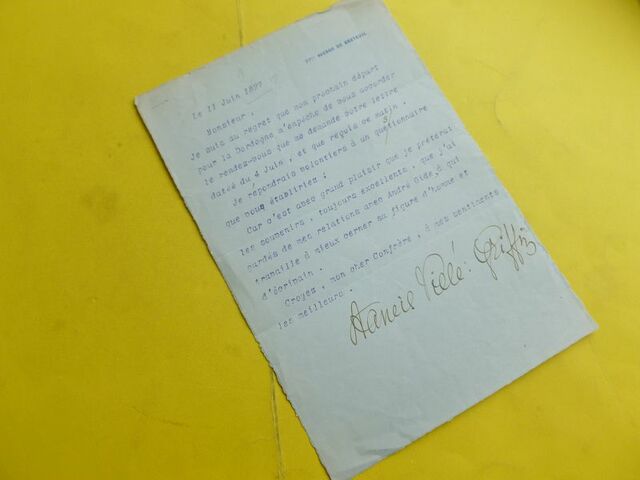 AVENUE DE BRETEUIL
Le 11 Juin
Monsieur :
Je suis au regret que mon prochain départ
pour la Dordogne m'empêche de vous accorder
le rendez-vous que me demande votre lettre
datée du 4 Juin, et que reçois ce matin.
Je répondrais volontiers à un questionnaire
que vous établiriez ;
Car c'est avec grand plaisir que je prêterai
les souvenirs, toujours excellents, que j'ai
gardés de mes relations avec André Gide, à qui
travaille à mieux cerner sa figure d'homme et
d'écrivain.
Croyez, mon cher Confrère, à mes sentiments
les meilleurs.
Francis Vielé-Griffin